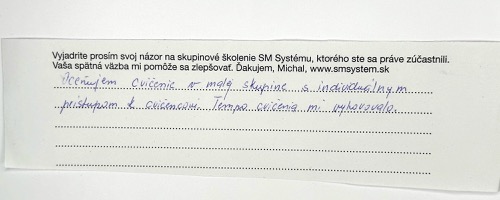 Vyjadrite prosím svoj názor na skupinové školenie SM Systému, ktorého ste sa práve zúčastnili.
Vaša spätná väzba mi pomôže sa zlepšovať. Ďakujem, Michal, www.smsystem.sk
Oceňujem cvičenie v malej skupine s individuálnym
prístupom k cvičencovi. Tempo cvičenia mi vyhovovalo.